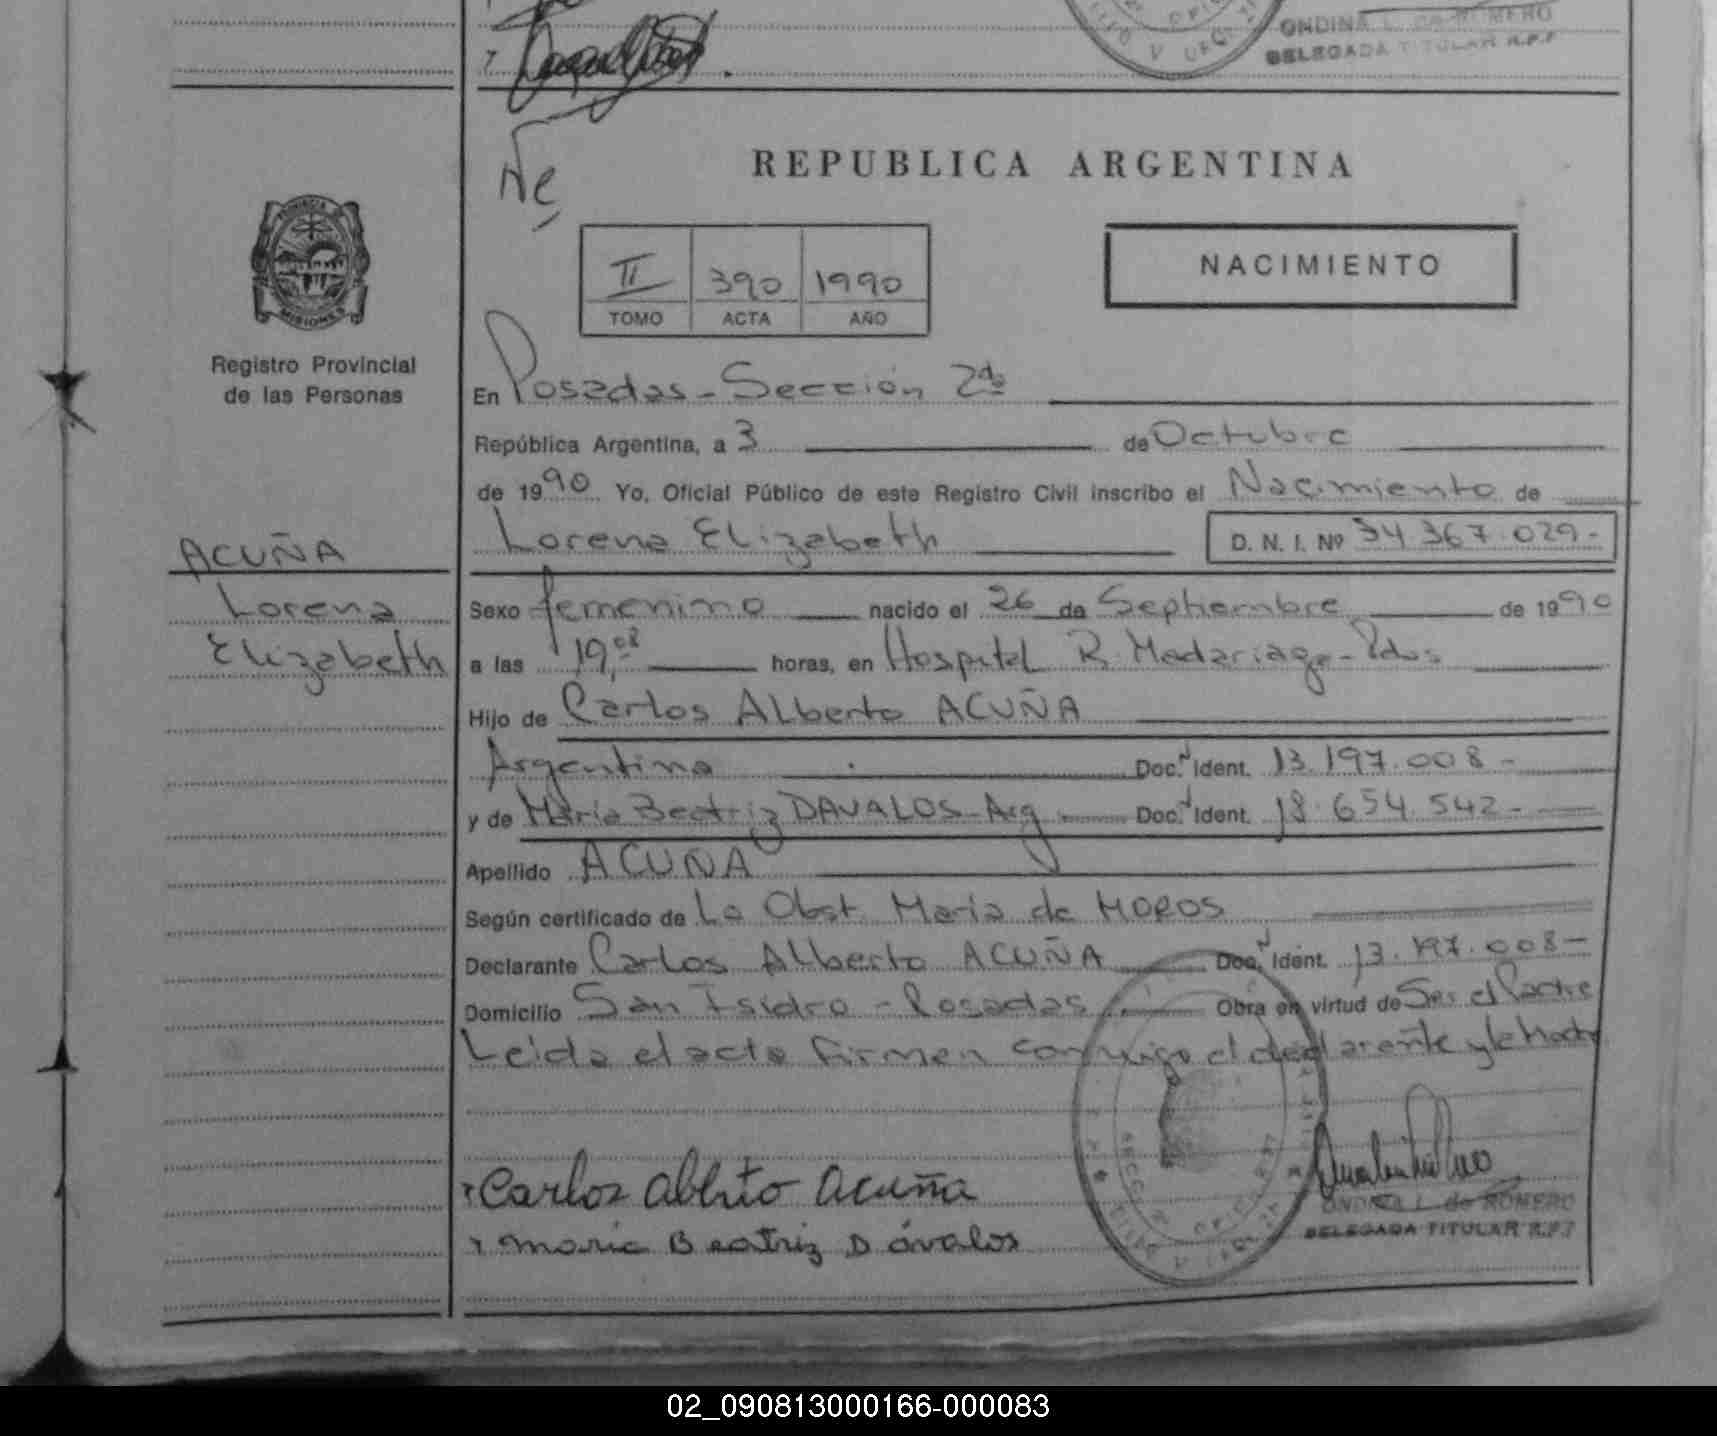 ONDINA L. de ROMERO
DELEGADA TITULAR R.P.P
Ne
REPUBLICA ARGENTINA
NACIMIENTO
II 390 1990
TOMO ACTA AÑO
PROVINCIA DE
MISIONES
Registro Provincial
de las Personas
En Posadas - Sección 2da
República Argentina, a 3 de Octubre
de 1990 Yo, Oficial Público de este Registro Civil inscribo el Nacimiento de
Lorena Elizabeth D. N. I. Nº 34.367.029-
ACUÑA
Lorena
Elizabeth
Sexo femenino nacido el 26 de Septiembre de 1990
a las 19,08 horas, en Hospital R. Madariaga - Pdas
Hijo de Carlos Alberto ACUÑA
Argentino Doc. Ident. 13.197.008-
y de Maria Beatriz DAVALOS - Arg Doc. Ident. 18.654.542-
Apellido ACUÑA
Según certificado de La Obst. Maria de MOROS
Declarante Carlos Alberto ACUÑA Doc. Ident. 13.197.008-
Domicilio San Isidro - Posadas Obra en virtud de Ser el Padre
Leida el acta firman conmigo el declarante y la Madre
Carlos Alberto Acuña
Maria Beatriz Dávalos
ONDINA L. de ROMERO
DELEGADA TITULAR R.P.P
02_090813000166-000083